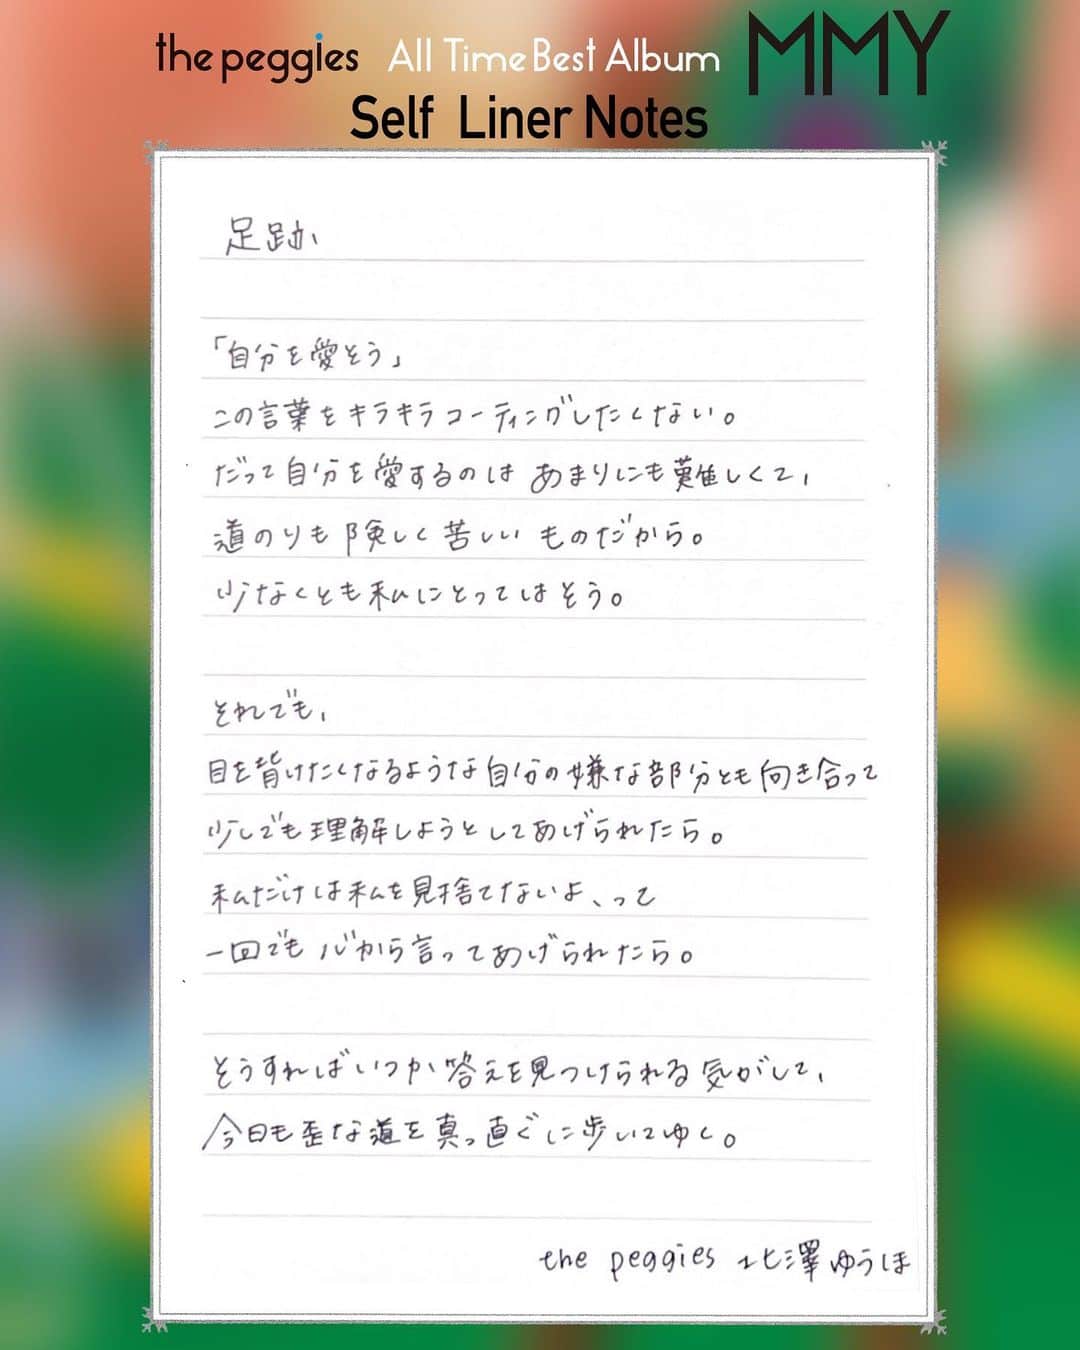 the peggies All Time Best Album MMY
Self Liner Notes
足跡
「自分を愛そう」
この言葉をキラキラコーティングしたくない。
だって自分を愛するのは あまりにも難しくて、
道のりも険しく苦しいものだから。
少なくとも私にとってはそう。
それでも、
目を背けたくなるような自分の嫌な部分とも向き合って
少しでも理解しようとしてあげられたら。
私だけは私を見捨てないよ、って
一回でも心から言ってあげられたら。
そうすればいつか答えを見つけられる気がして、
今日も歪な道を真っ直ぐに歩いてゆく。
the peggies 北澤ゆうほ